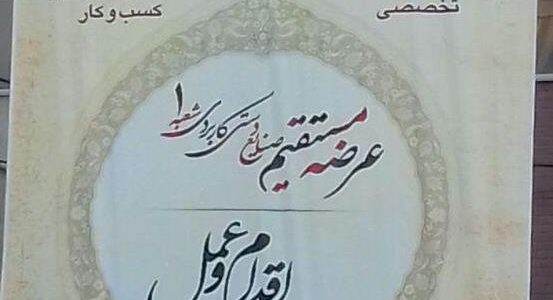 تخصصی کسب و کار
عرضه مستقیم صنایع دستی کاربردی شعبه ۱
اقدام و عمل